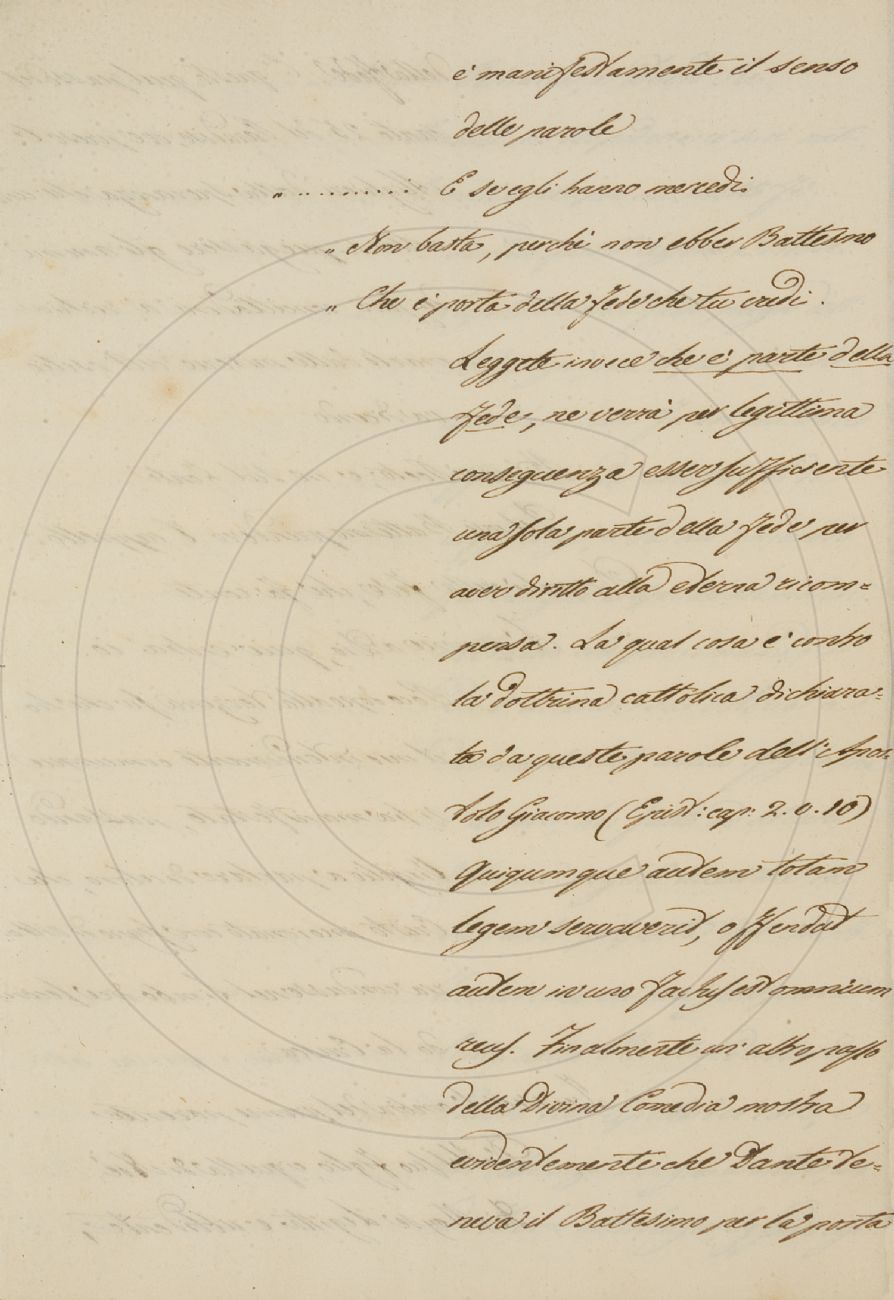 è manifestamente il senso
delle parole
" .......... E s'egli hanno mercedi
" Non basta, perchè non ebber Battesmo
" Che è porta della fede che tu credi.
Leggete invece che è parte della
fede, ne verrà per legittima
conseguenza esser sufficiente
una sola parte della fede per
aver diritto alla eterna ricom=
pensa. La qual cosa è contro
la dottrina cattolica dichiara=
ta da queste parole dell'Apos=
tolo Giacomo (Epist: cap: 2. v. 10)
Quiqumque autem totam
legem servaverit, offendat
autem in uno factus est omnium
reus. Finalmente un altro passo
della Divina Comedia mostra
evidentemente che Dante te=
neva il Battesimo per la porta